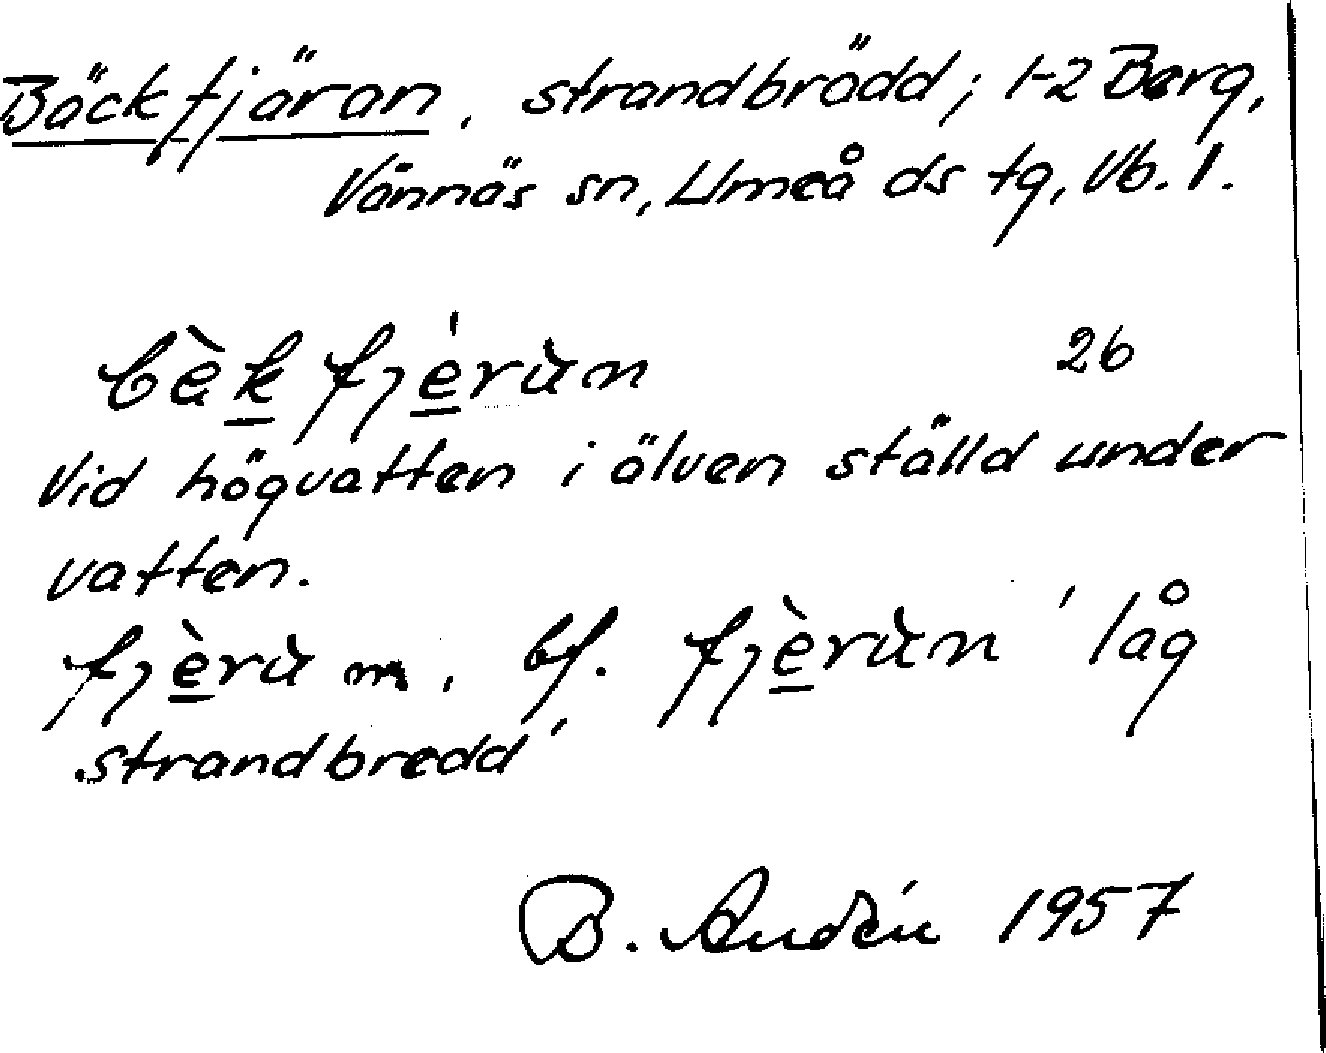 Bäckfjäran, strandbrädd; 1-2 Berg,
Vännäs sn, Umeå ds tg, Vb. l.
bèk fjérùn 26
Vid högvatten i älven ställd under
vatten.
fjèrù m., bf. fjèrùn ' låg
strandbredd'
B. Andén 1957